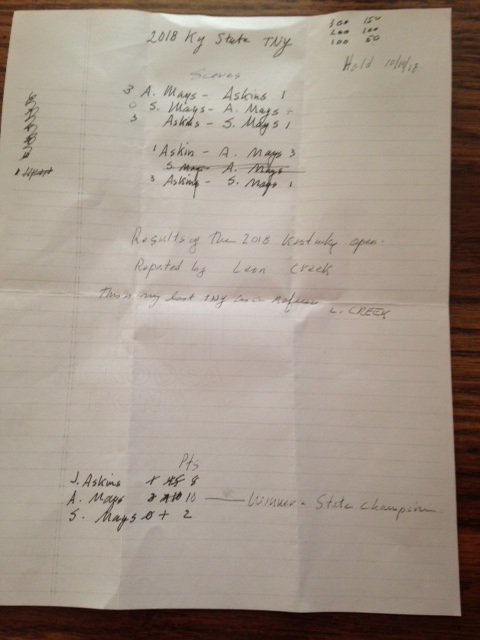 2018 Ky State TNY
300 150
200 100
100 50
Held 10/14/18
Scores
3 A. Mays - Askins 1
0 S. Mays - A. Mays
3 Askins - S. Mays 1
1 Askin - A. Mays 3
S. Mays - A. Mays
3 Askins - S. Mays 1
Results of the 2018 Kentucky open.
Reported by Leon Creek
This is my last TNY as a Referee
L. CREEK
Pts
J. Askins 8
A. Mays 10 Winner - State Champion
S. Mays 0 + 2